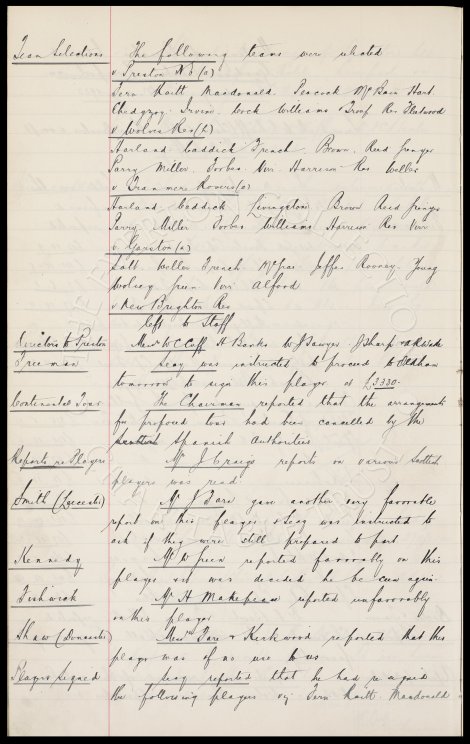 Team Selections The following teams were selected
v Preston N.E (a)
Fern Raitt Macdonald. Peacock McBain Hart
Chedgzoy. Irvine. Cock Williams & Troup Res Fleetwood
v Wolves Res (h)
Harland Caddick French. Brown. Reid Grenyer
Parry Miller. Forbes. Virr. Harrison Res Weller
v Tranmere Rovers (a)
Harland Caddick Livingstone Brown Reid Grenyer
Parry Miller Forbes Williams Harrison Res Virr
v Garston (a)
Salt. Weller French McGrae Jeffes Rooney. Young
Wolsey Green Virr Alford
v New Brighton Res
left to Staff
Directors to Preston Messrs W C Cuff A Banks W J Sawyer J Sharp & A R Wade
Freeman Secy was instructed to proceed to Oldham
tomorrow to sign this player at £3330.
Continental Tour The Chairman reported that the arrangements
for proposed tour had been cancelled by the
Spanish Authorities
Reports re Players Mr J Craigs reports on various Scottish
players was read
Smith (Leicester) Mr J Fare gave another very favorable
report on this player & Secy was instructed to
ask if they were still prepared to part
Kennedy Mr W Green reported favorably on this
player & it was decided he be seen again
Fishwick Mr H Makepeace reported unfavorably
on this player
Shaw (Doncaster) Messrs Fare & Kirkwood reported that this
player was of no use to us
Players Signed Secy reported that he had re signed
the following players viz Fern Raitt Macdonald